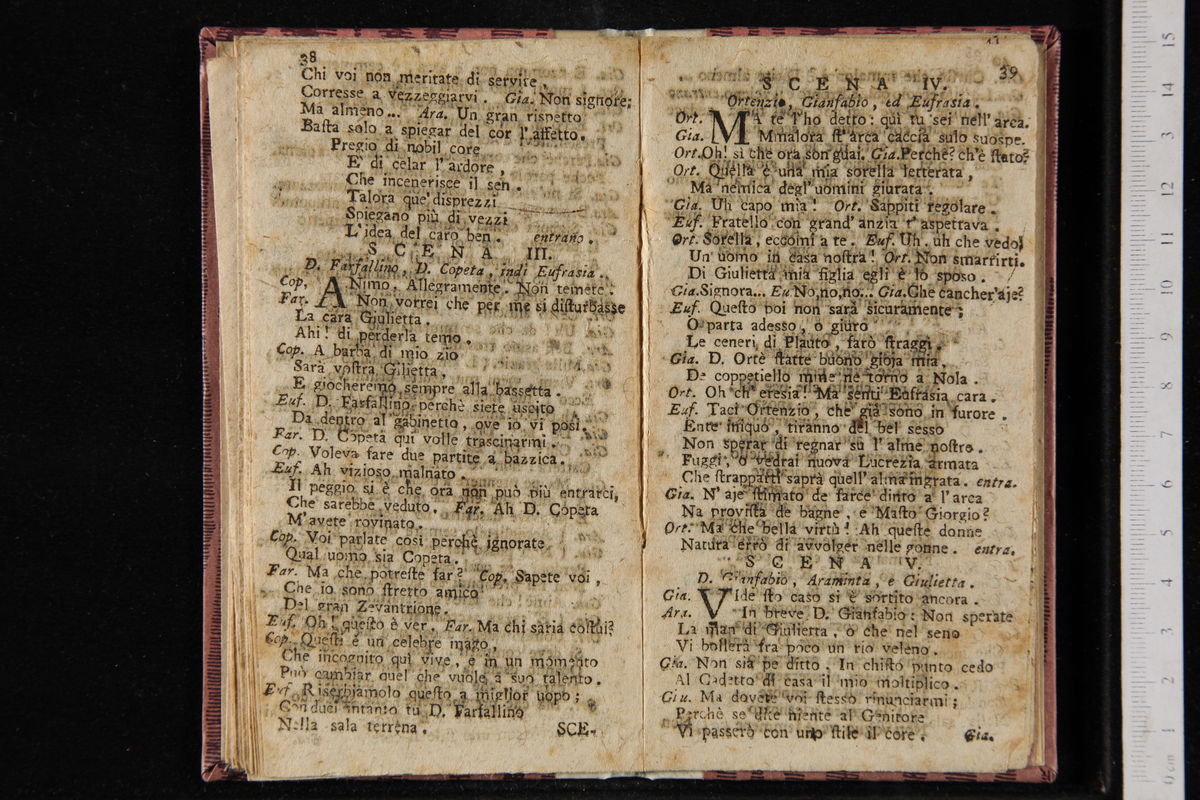 38
Chi voi non meritate di servire,
Corresse a vezzeggiarvi. Gia. Non signore;
Ma almeno... Ara. Un gran rispetto
Basta solo a spiegar del cor l'affetto.
Pregio di nobil core
E' di celar l'ardore,
Che incenerisce il sen.
Talora que' disprezzi
Spiegano più di vezzi
L'idea del caro ben. entrano.
SCENA III.
D. Farfallino, D. Copeta, indi Eufrasia.
Cop. ANimo. Allegramente. Non temete.
Far. Non vorrei che per me si disturbasse
La cara Giulietta.
Ahi! di perderla temo.
Cop. A barba di mio zio
Sarà vostra Gilietta,
E giocheremo sempre alla bassetta.
Euf. D. Farfallino perchè siete uscito
Da dentro al gabinetto, ove io vi posi.
Far. D. Copeta qui volle trascinarmi.
Cop. Voleva fare due partite a bazzica.
Euf. Ah vizioso malnato.
Il peggio si è che ora non può più entrarci,
Che sarebbe veduto. Far. Ah D. Copeta
M'avete rovinato.
Cop. Voi parlate così perchè ignorate
Qual uomo sia Copeta.
Far. Ma che potreste far? Cop. Sapete voi,
Che io sono stretto amico
Del gran Zevantrione.
Euf. Oh! questo è ver. Far. Ma chi saria costui?
Cop. Questi è un celebre mago,
Che incognito qui vive, e in un momento
Può cambiar quel che vuole a suo talento.
Euf. Riserbiamolo questo a miglior uopo;
Conduci intanto tu D. Farfallino
Nella sala terrena. SCE-
39
SCENA IV.
Ortenzio, Gianfabio, ed Eufrasia.
Ort. MA te l'ho detto: qui tu sei nell'arca.
Gia. Mmalora st'arca caccia sulo suospe.
Ort. Oh! sì che ora son guai. Gia. Perchè? ch'è stato?
Ort. Quella è una mia sorella letterata,
Ma nemica degl'uomini giurata.
Gia. Uh capo mia! Ort. Sappiti regolare.
Euf. Fratello con grand'anzia t'aspettava.
Ort. Sorella, eccomi a te. Euf. Uh, uh che vedo!
Un'uomo in casa nostra! Ort. Non smarrirti.
Di Giulietta mia figlia egli è lo sposo.
Gia. Signora... Eu. No, no, no... Gia. Che cancher'aje?
Euf. Questo poi non sarà sicuramente;
O parta adesso, o giuro
Le ceneri di Plauto, farò straggi.
Gia. D. Ortè statte buono gioja mia,
De coppetiello mme ne torno a Nola.
Ort. Oh ch'eresia! Ma senti Eufrasia cara.
Euf. Taci Ortenzio, che già sono in furore.
Ente iniquo, tiranno del bel sesso
Non sperar di regnar su l'alme nostre.
Fuggi, o vedrai nuova Lucrezia armata
Che strapparti saprà quell'alma ingrata. entra.
Gia. N'aje stimato de farce dinto a l'arca
Na provista de bagne, e Masto Giorgio?
Ort. Ma che bella virtù! Ah queste donne
Natura errò di avvolger nelle gonne. entra.
SCENA V.
D. Gianfabio, Araminta, e Giulietta.
Gia. VIde sto caso si è sortito ancora.
Ara. In breve D. Gianfabio: Non sperate
La man di Giulietta, o che nel seno
Vi bollerà fra poco un rio veleno.
Gia. Non sia pe ditto. In chisto punto cedo
Al Cadetto di casa il mio moltiplico.
Giu. Ma dovete voi stesso rinunciarmi;
Perchè se dite niente al Genitore
Vi passerò con uno stile il core. Gia.